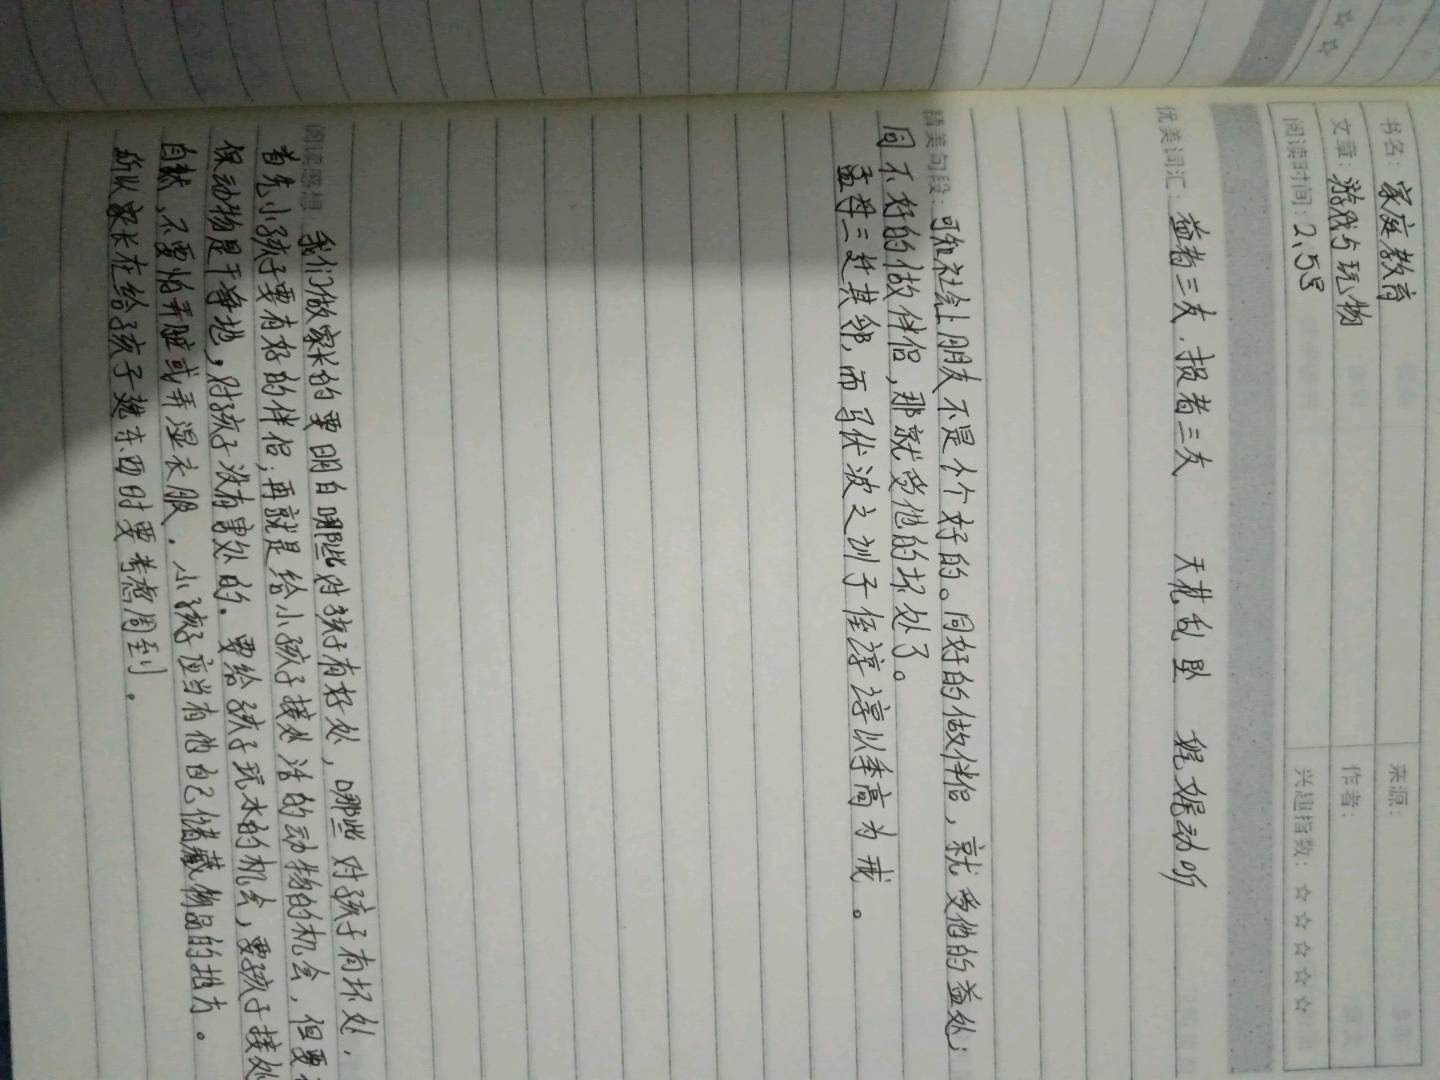 书名：家庭教育 来源：
文章：游戏与玩物 作者：
阅读时间：2、5号 兴趣指数：☆☆☆☆☆
优美词汇：益者三友，损者三友 天花乱坠 娓娓动听
精美句段：可知社会上朋友不是个个好的。同好的做伴侣，就受他的益处；
同不好的做伴侣，那就受他的坏处了。
孟母三迁其邻，而马伏波之训子侄谆谆以季高为戒。
阅读感想：我们做家长的要明白哪些对孩子有好处，哪些对孩子有坏处，
首先小孩子要有好的伴侣；再就是给小孩子接处活的动物的机会，但要
保动物是干净地，对孩子没有害处的。要给孩子玩水的机会，要孩子接处
自然，不要怕弄脏或弄湿衣服，小孩子应当有他自己储藏物品的地方。
所以家长在给孩子选东西时要考虑周到。